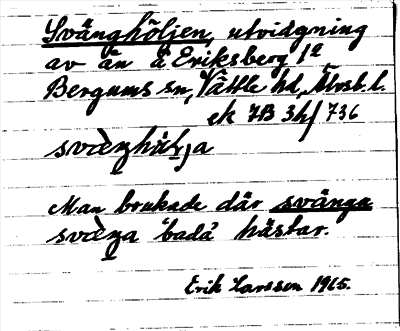 Svänghöljen, utvidgning
av ån å Eriksberg 1²
Bergums sn, Vättle hd, Älvsb. l.
ek 7B 3h/736
svæ̀ŋhøl̨ja
Man brukade där svänga
svæ̀ŋa "bada" hästar.
Erik Larsson 1965.